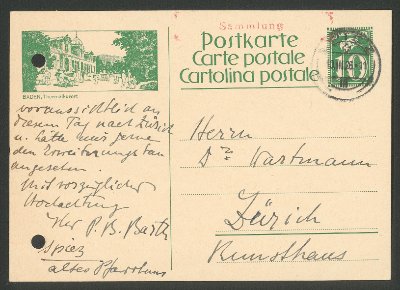 Sammlung
Postkarte
Carte postale
Cartolina postale
10
BADEN, Thermalkurort
voraussichtlich an
diesem Tag nach Zürich
u. hätte mir gerne
den Erweiterungsbau
angesehen.
Mit vorzüglicher
Hochachtung
P. B. Barth
Spiez
altes Pfarrhaus
Herrn
Dr. Wartmann
Zürich
Kunsthaus